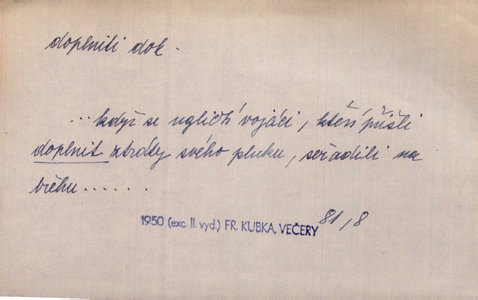 doplniti dok.
...když se ugličtí vojáci, kteří přišli
doplnit ztráty svého pluku, seřadili na
břehu......
1950 (exc. II. vyd.) FR. KUBKA, VEČERY 81/8